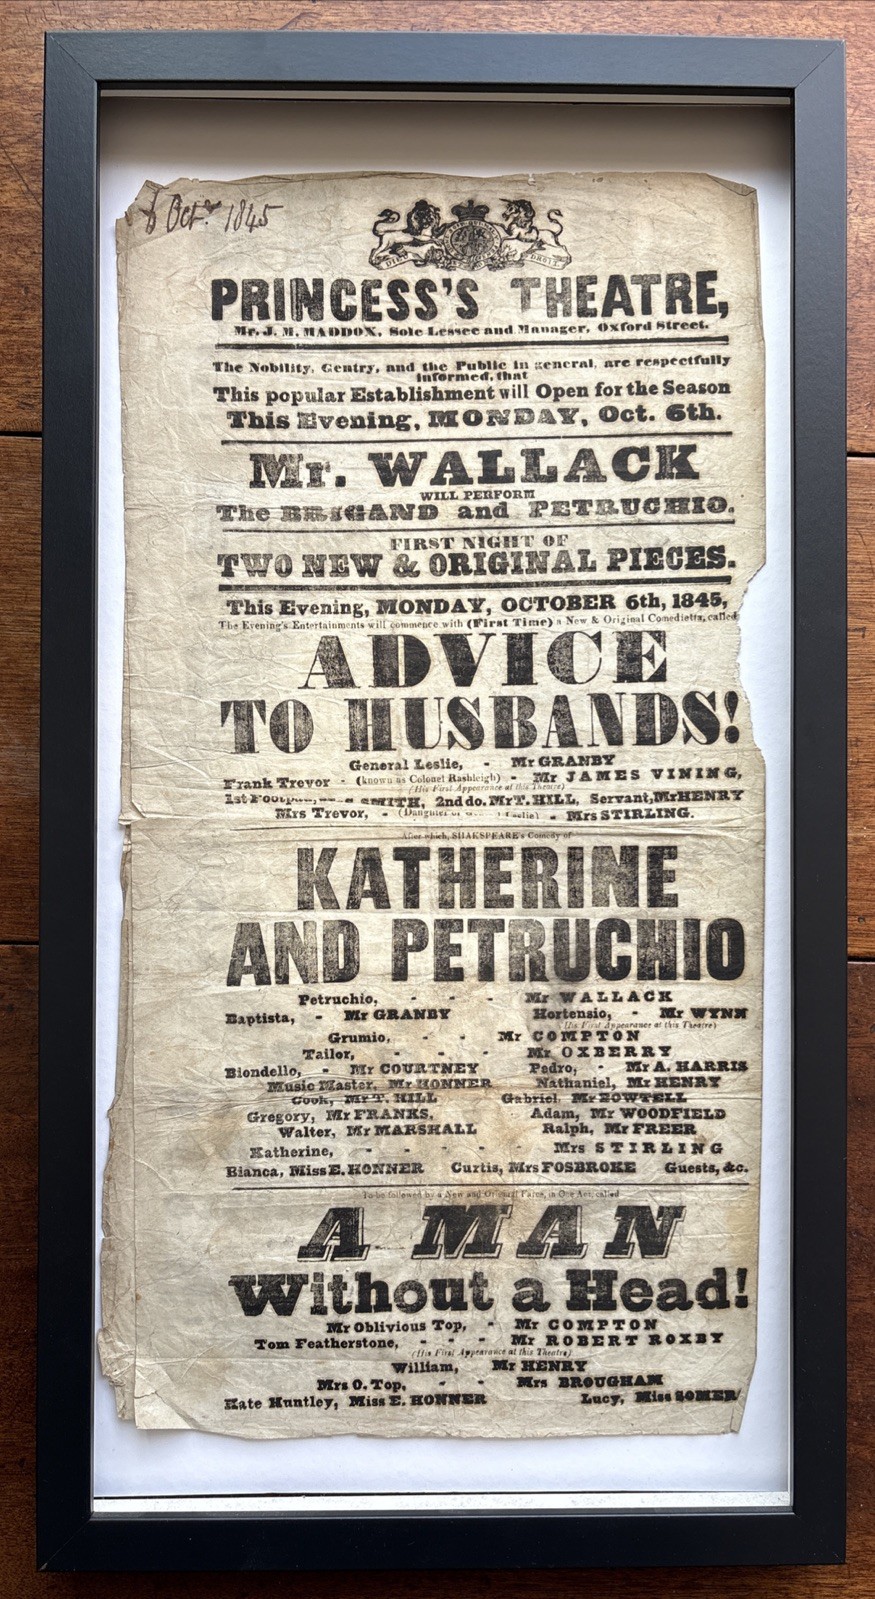 6 Octr. 1845
DIEU DROIT
PRINCESS'S THEATRE,
Mr. J. M. MADDOX, Sole Lessee and Manager, Oxford Street.
The Nobility, Gentry, and the Public in general, are respectfully
informed, that
This popular Establishment will Open for the Season
This Evening, MONDAY, Oct. 6th.
Mr. WALLACK
WILL PERFORM
The BRIGAND and PETRUCHIO.
FIRST NIGHT OF
TWO NEW & ORIGINAL PIECES.
This Evening, MONDAY, OCTOBER 6th, 1845,
The Evening's Entertainments will commence with (First Time) a New & Original Comedietta, called
ADVICE
TO HUSBANDS!
General Leslie, - Mr GRANBY
Frank Trevor - (known as Colonel Rashleigh) - Mr JAMES VINING,
(His First Appearance at this Theatre)
1st SMITH, 2nd do. Mr T. HILL, Servant, Mr HENRY
Mrs Trevor, - (Daughter of Leslie) - Mrs STIRLING.
After which, SHAKSPEARE's Comedy of
KATHERINE
AND PETRUCHIO
Petruchio, - - - Mr WALLACK
Baptista, - Mr GRANBY Hortensio, - Mr WYNN
(His First Appearance at this Theatre)
Grumio, - - Mr COMPTON
Tailor, - - - - Mr OXBERRY
Biondello, - Mr COURTNEY Pedro, - Mr A. HARRIS
Music Master, Mr HONNER Nathaniel, Mr HENRY
Cook, Mr T. HILL Gabriel Mr BOWTELL
Gregory, Mr FRANKS, Adam, Mr WOODFIELD
Walter, Mr MARSHALL Ralph, Mr FREER
Katherine, - - - - - Mrs STIRLING
Bianca, Miss E. HONNER Curtis, Mrs FOSBROKE Guests, &c.
To be followed by a New and Original Farce, in One Act, called
A MAN
Without a Head!
Mr Oblivious Top, - Mr COMPTON
Tom Featherstone, - - - Mr ROBERT ROXBY
(His First Appearance at this Theatre)
William, Mr HENRY
Mrs O. Top, - - Mrs BROUGHAM
Kate Huntley, Miss E. HONNER Lucy, Miss SOMER